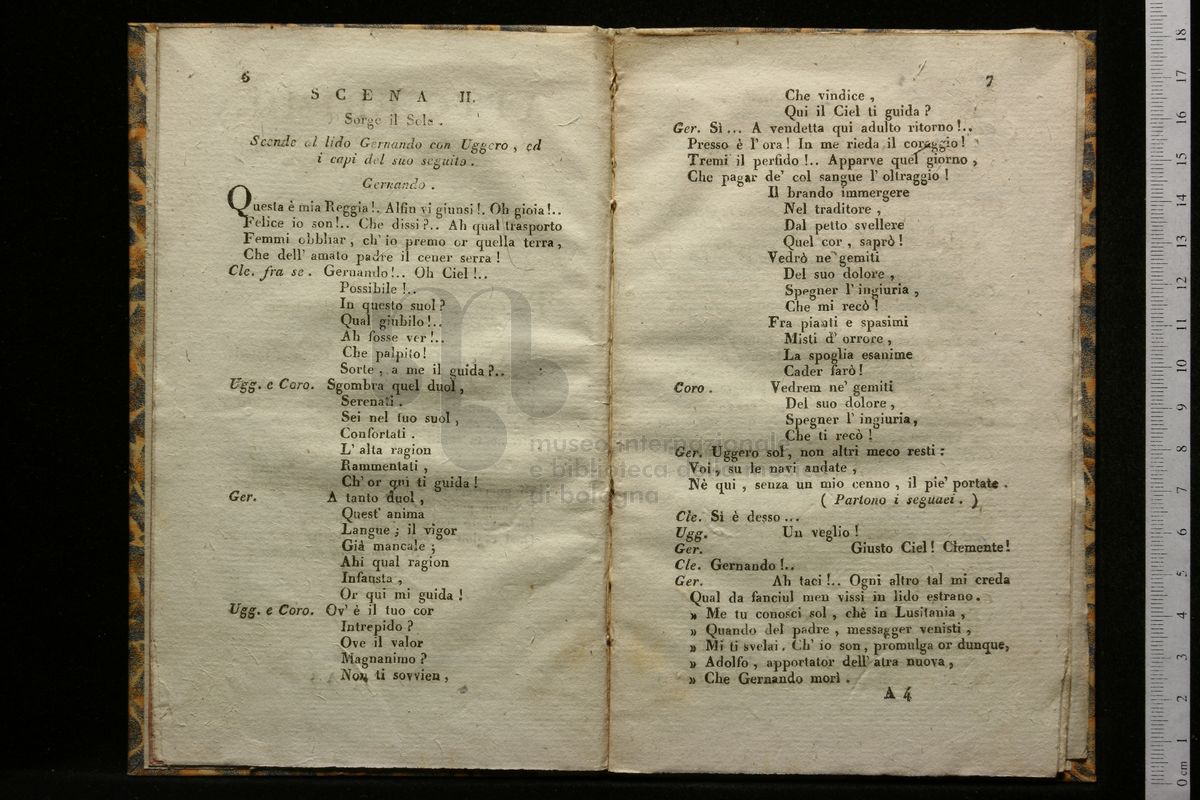 6
SCENA II.
Sorge il Sole.
Scende al lido Gernando con Uggero, ed
i capi del suo seguito.
Gernando.
Questa è mia Reggia!. Alfin vi giunsi!. Oh gioia!..
Felice io son!.. Che dissi?.. Ah qual trasporto
Femmi obbliar, ch' io premo or quella terra,
Che dell' amato padre il cener serra!
Cle. fra se. Gernando!.. Oh Ciel!..
Possibile!..
In questo suol?
Qual giubilo!..
Ah fosse ver!..
Che palpito!
Sorte, a me il guida?..
Ugg. e Coro. Sgombra quel duol,
Serenati.
Sei nel tuo suol,
Confortati.
L' alta ragion
Rammentati,
Ch' or qui ti guida!
Ger. A tanto duol,
Quest' anima
Langue; il vigor
Già mancale;
Ahi qual ragion
Infausta,
Or qui mi guida!
Ugg. e Coro. Ov' è il tuo cor
Intrepido?
Ove il valor
Magnanimo?
Non ti sovvien,
7
Che vindice,
Qui il Ciel ti guida?
Ger. Sì... A vendetta qui adulto ritorno!..
Presso è l' ora! In me rieda il coraggio!
Tremi il perfido!.. Apparve quel giorno,
Che pagar de' col sangue l' oltraggio!
Il brando immergere
Nel traditore,
Dal petto svellere
Quel cor, saprò!
Vedrò ne' gemiti
Del suo dolore,
Spegner l' ingiuria,
Che mi recò!
Fra pianti e spasimi
Misti d' orrore,
La spoglia esanime
Cader farò!
Coro. Vedrem ne' gemiti
Del suo dolore,
Spegner l' ingiuria,
Che ti recò!
Ger. Uggero sol, non altri meco resti:
Voi, su le navi andate,
Nè qui, senza un mio cenno, il pie' portate.
( Partono i seguaci. )
Cle. Sì è desso...
Ugg. Un veglio!
Ger. Giusto Ciel! Clemente!
Cle. Gernando!..
Ger. Ah taci!.. Ogni altro tal mi creda
Qual da fanciul men vissi in lido estrano.
» Me tu conosci sol, chè in Lusitania,
» Quando del padre, messagger venisti,
» Mi ti svelai. Ch' io son, promulga or dunque,
» Adolfo, apportator dell' atra nuova,
» Che Gernando morì.
A 4
museo internazionale
e biblioteca della musica
di bologna
0 cm 1 2 3 4 5 6 7 8 9 10 11 12 13 14 15 16 17 18